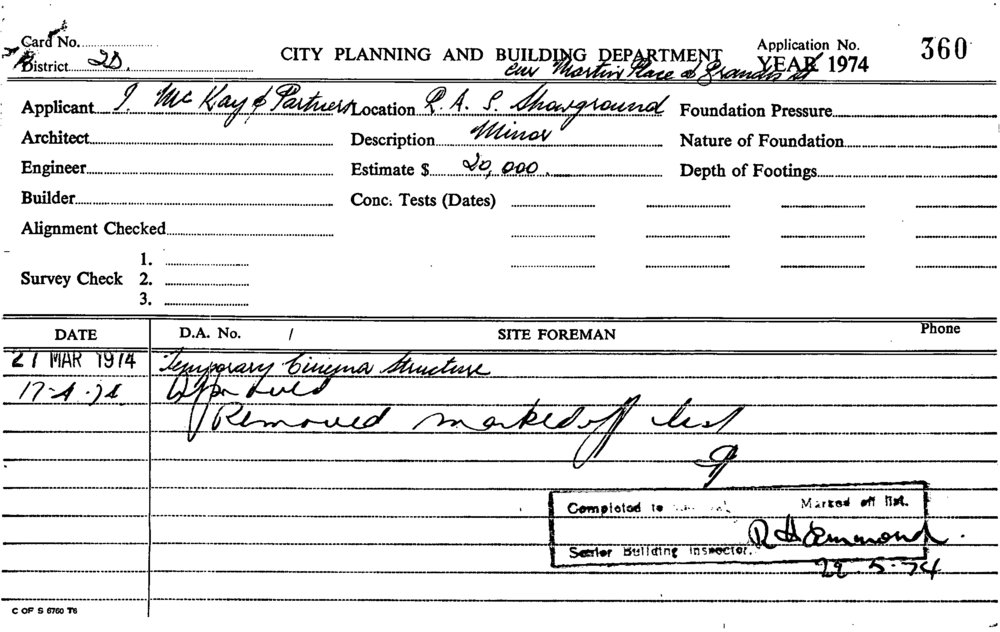 Card No.
CITY PLANNING AND BUILDING DEPARTMENT
Application No. 360
District 2D.
YEAR 1974
cnr Martin Place & Grand St
Applicant I. McKay & Partners
Location R.A.S. Showground
Foundation Pressure
Architect
Description Minor
Nature of Foundation
Engineer
Estimate $ 20,000.
Depth of Footings
Builder
Conc. Tests (Dates)
Alignment Checked
Survey Check 1.
2.
3.
DATE D.A. No. / SITE FOREMAN Phone
21 MAR 1974 Temporary Cinema Structure
17-4-74 Approved
Removed marked off list
Completed to Marked off list.
R Hammond.
Senior Building Inspector.
29.5-74
C OF S 6760 T6